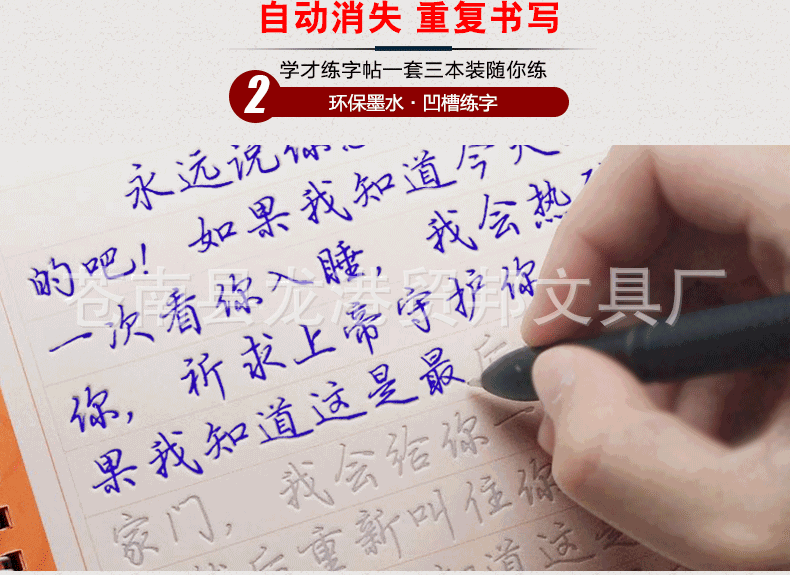 自动消失 重复书写
学才练字帖一套三本装随你练
2
环保墨水·凹槽练字
永远说你
如果我知道今天
的吧！
我会热
一次看你入睡，
苍南县龙港贸邦文具厂
你，祈求上帝守护你
果我知道这是最后
家门，我会给你一
后重新叫住你
知道这是